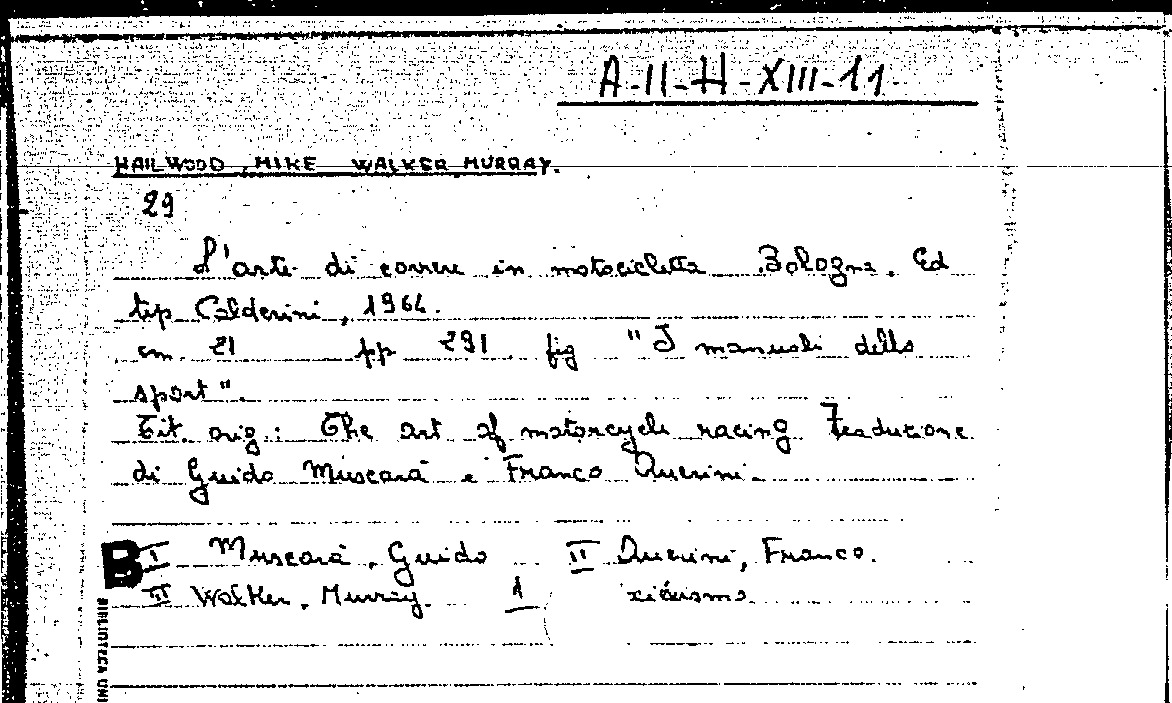 A-II-H-XIII-11.
HAILWOOD, MIKE WALKER MURRAY.
29
L'arte di correre in motocicletta Bologna. Ed
tip Calderini, 1964.
cm. 21 pp 291 fig "I manuali dello
sport".
Tit. orig.: The art of motorcycle racing Traduzione
di Guido Muscarà e Franco Querini.
I Muscarà, Guido II Querini, Franco.
III Walker, Murray. 1
BIBLIOTECA UNI